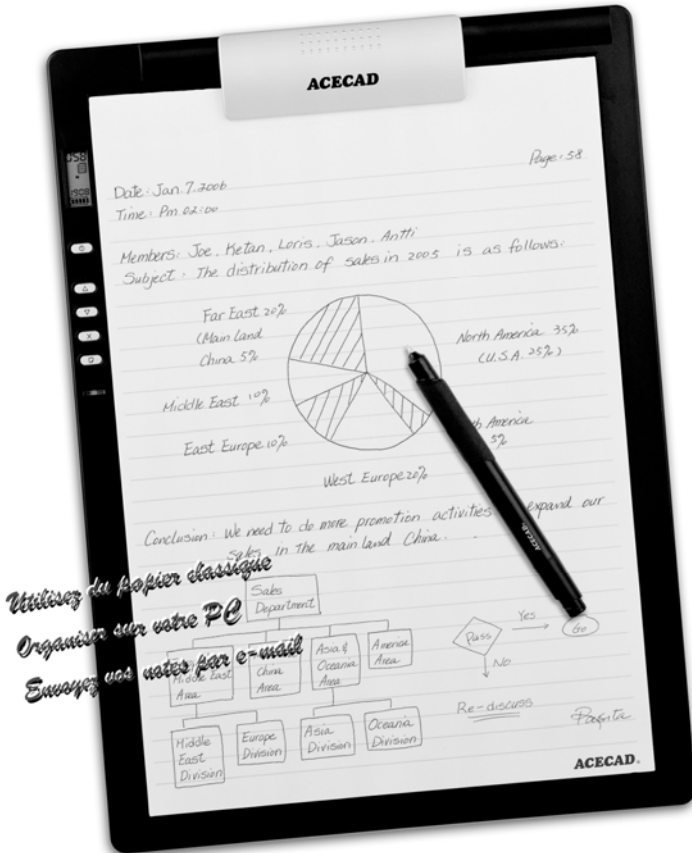 ACECAD
058
Page: 58
Date: Jan. 7. 2006
Time: Pm 02:00
Members: Joe, Ketan, Loris, Jason, Antti
Subject: The distribution of sales in 2005 is as follows:
Far East 20%
(Main land
China 5%
North America 35%
(U.S.A. 25%)
Middle East 10%
America
5%
East Europe 10%
West Europe 20%
Conclusion: We need to do more promotion activities expand our
sales in the main land China.
Utilisez du papier classique
Organiser sur votre PC
Envoyez vos notes par e-mail
Sales
Department
Middle East
Area
China
Area
Asia &
Oceania
Area
America
Area
Middle
East
Division
Europe
Division
Asia
Division
Oceania
Division
Pass
Yes
Go
No
Re-discuss
ACECAD
ACECAD